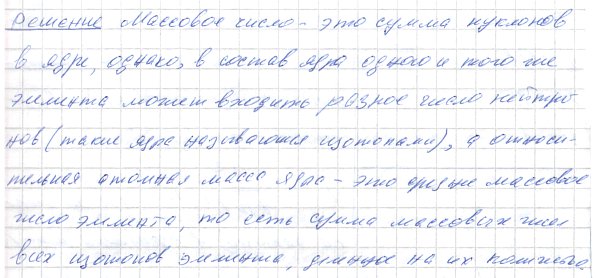 Решение Массовое число - это сумма нуклонов
в ядре, однако, в состав ядра одного и того же
элемента может входить разное число нейтро
нов (такие ядра называются изотопами), а относи-
тельная атомная масса ядра - это средне массовое
число элемента, то есть сумма массовых чисел
всех изотопов элемента, деленное на их количество.